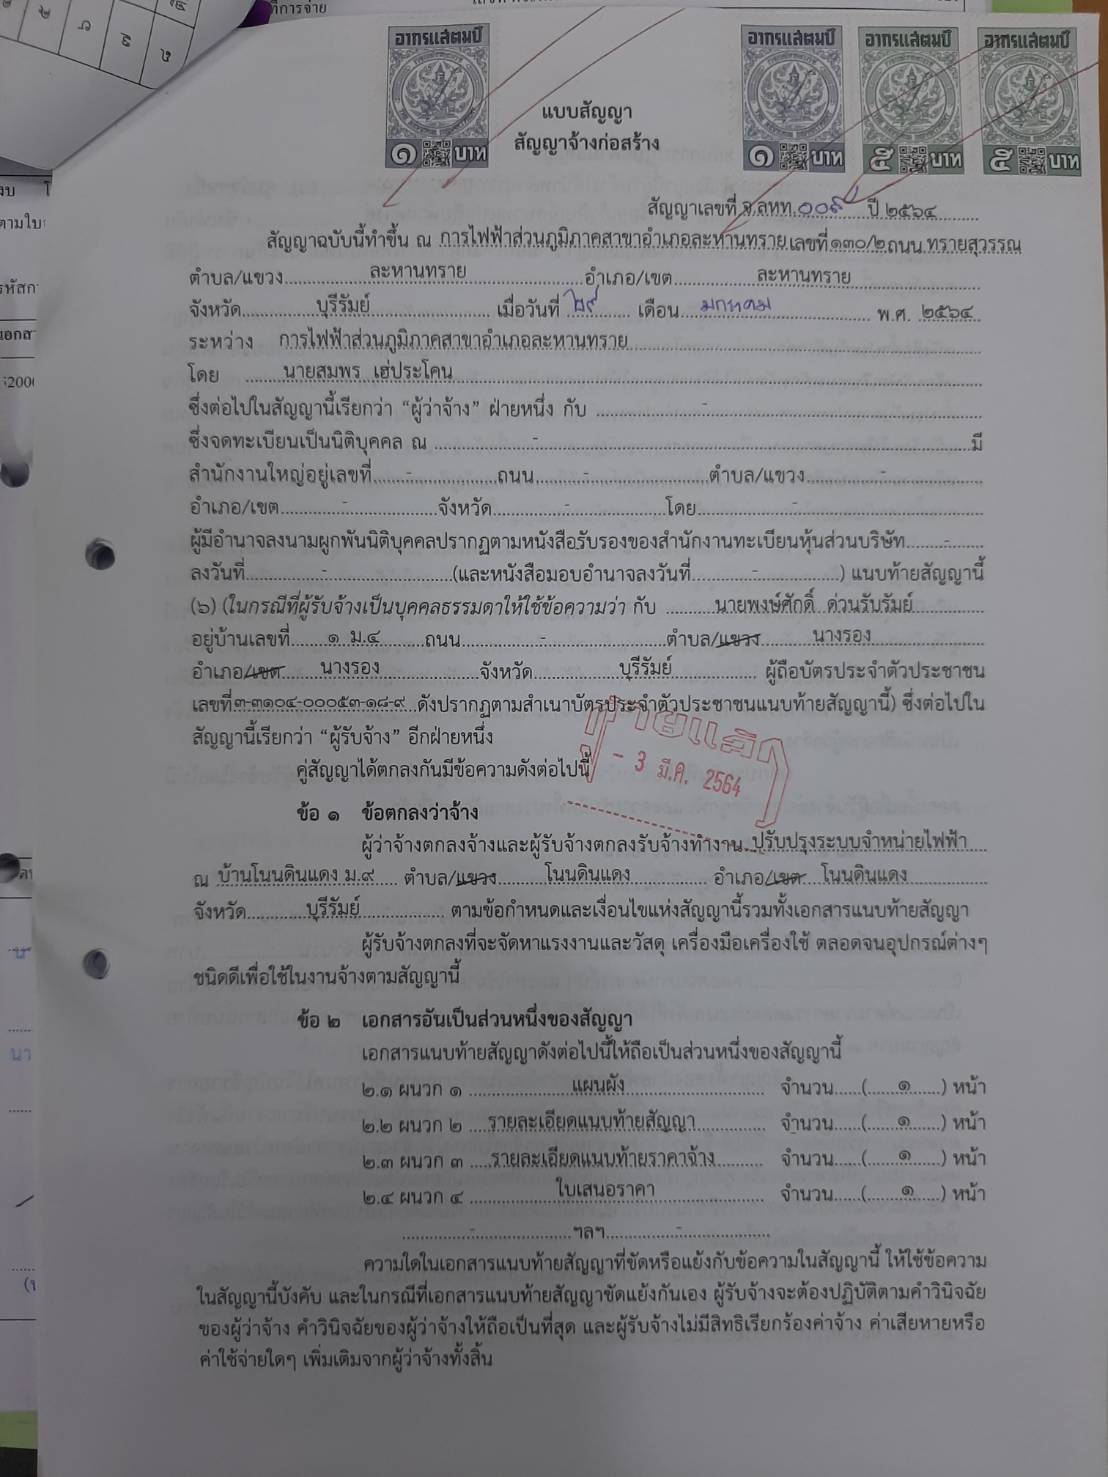 ที่การจ่าย
อากรแสตมป์ อากรแสตมป์ อากรแสตมป์ อากรแสตมป์
๑ บาท ๑ บาท ๕ บาท ๕ บาท
แบบสัญญา
สัญญาจ้างก่อสร้าง
สัญญาเลขที่ จ.ลหท. ๐๐๙ ปี ๒๕๖๔
สัญญาฉบับนี้ทำขึ้น ณ การไฟฟ้าส่วนภูมิภาคสาขาอำเภอละหานทราย เลขที่ ๑๓๐/๒ ถนน ทรายสุวรรณ
ตำบล/แขวง ละหานทราย อำเภอ/เขต ละหานทราย
จังหวัด บุรีรัมย์ เมื่อวันที่ ๒๙ เดือน มกราคม พ.ศ. ๒๕๖๔
ระหว่าง การไฟฟ้าส่วนภูมิภาคสาขาอำเภอละหานทราย
โดย นายสมพร เฮ่ประโคน
ซึ่งต่อไปในสัญญานี้เรียกว่า “ผู้ว่าจ้าง” ฝ่ายหนึ่ง กับ -
ซึ่งจดทะเบียนเป็นนิติบุคคล ณ - มี
สำนักงานใหญ่อยู่เลขที่ - ถนน - ตำบล/แขวง -
อำเภอ/เขต - จังหวัด - โดย -
ผู้มีอำนาจลงนามผูกพันนิติบุคคลปรากฏตามหนังสือรับรองของสำนักงานทะเบียนหุ้นส่วนบริษัท -
ลงวันที่ - (และหนังสือมอบอำนาจลงวันที่ - ) แนบท้ายสัญญานี้
(๖) (ในกรณีที่ผู้รับจ้างเป็นบุคคลธรรมดาให้ใช้ข้อความว่า กับ นายพงษ์ศักดิ์ ด่วนรับรัมย์
อยู่บ้านเลขที่ ๑ ม.๔ ถนน - ตำบล/แขวง นางรอง
อำเภอ/เขต นางรอง จังหวัด บุรีรัมย์ ผู้ถือบัตรประจำตัวประชาชน
เลขที่ ๓-๓๑๐๔-๐๐๐๕๓-๑๘-๙ ดังปรากฏตามสำเนาบัตรประจำตัวประชาชนแนบท้ายสัญญานี้) ซึ่งต่อไปใน
สัญญานี้เรียกว่า “ผู้รับจ้าง” อีกฝ่ายหนึ่ง
คู่สัญญาได้ตกลงกันมีข้อความดังต่อไปนี้
- 3 มี.ค. 2564
ข้อ ๑ ข้อตกลงว่าจ้าง
ผู้ว่าจ้างตกลงจ้างและผู้รับจ้างตกลงรับจ้างทำงาน ปรับปรุงระบบจำหน่ายไฟฟ้า
ณ บ้านโนนดินแดง ม.๙ ตำบล/แขวง โนนดินแดง อำเภอ/เขต โนนดินแดง
จังหวัด บุรีรัมย์ ตามข้อกำหนดและเงื่อนไขแห่งสัญญานี้รวมทั้งเอกสารแนบท้ายสัญญา
ผู้รับจ้างตกลงที่จะจัดหาแรงงานและวัสดุ เครื่องมือเครื่องใช้ ตลอดจนอุปกรณ์ต่างๆ
ชนิดดีเพื่อใช้ในงานจ้างตามสัญญานี้
ข้อ ๒ เอกสารอันเป็นส่วนหนึ่งของสัญญา
เอกสารแนบท้ายสัญญาดังต่อไปนี้ให้ถือเป็นส่วนหนึ่งของสัญญานี้
๒.๑ ผนวก ๑ แผนผัง จำนวน ( ๑ ) หน้า
๒.๒ ผนวก ๒ รายละเอียดแนบท้ายสัญญา จำนวน ( ๑ ) หน้า
๒.๓ ผนวก ๓ รายละเอียดแนบท้ายราคาจ้าง จำนวน ( ๑ ) หน้า
๒.๔ ผนวก ๔ ใบเสนอราคา จำนวน ( ๑ ) หน้า
- ฯลฯ -
ความใดในเอกสารแนบท้ายสัญญาที่ขัดหรือแย้งกับข้อความในสัญญานี้ ให้ใช้ข้อความ
ในสัญญานี้บังคับ และในกรณีที่เอกสารแนบท้ายสัญญาขัดแย้งกันเอง ผู้รับจ้างจะต้องปฏิบัติตามคำวินิจฉัย
ของผู้ว่าจ้าง คำวินิจฉัยของผู้ว่าจ้างให้ถือเป็นที่สุด และผู้รับจ้างไม่มีสิทธิเรียกร้องค่าจ้าง ค่าเสียหายหรือ
ค่าใช้จ่ายใดๆ เพิ่มเติมจากผู้ว่าจ้างทั้งสิ้น